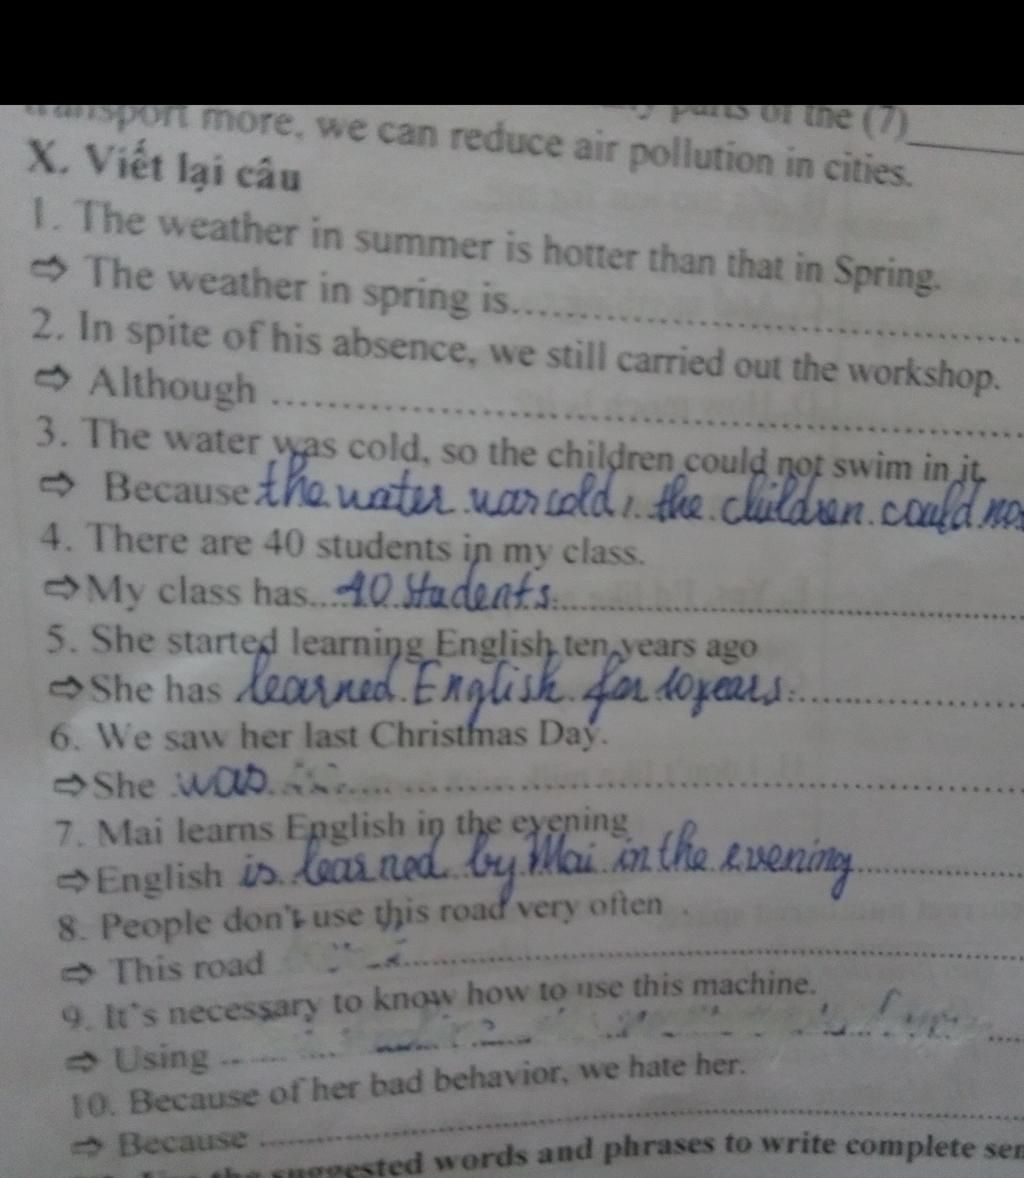 parts of the (7)
transport more, we can reduce air pollution in cities.
X. Viết lại câu
1. The weather in summer is hotter than that in Spring.
⇨ The weather in spring is
2. In spite of his absence, we still carried out the workshop.
⇨ Although
3. The water was cold, so the children could not swim in it.
⇨ Because the water was cold, the children could no
4. There are 40 students in my class.
⇨ My class has 40 students.
5. She started learning English ten years ago
⇨ She has learned English for 10 years.
6. We saw her last Christmas Day.
⇨ She was
7. Mai learns English in the evening
⇨ English is learned by Mai in the evening
8. People don't use this road very often .
⇨ This road
9. It's necessary to know how to use this machine.
⇨ Using
10. Because of her bad behavior, we hate her.
⇨ Because
the suggested words and phrases to write complete sen